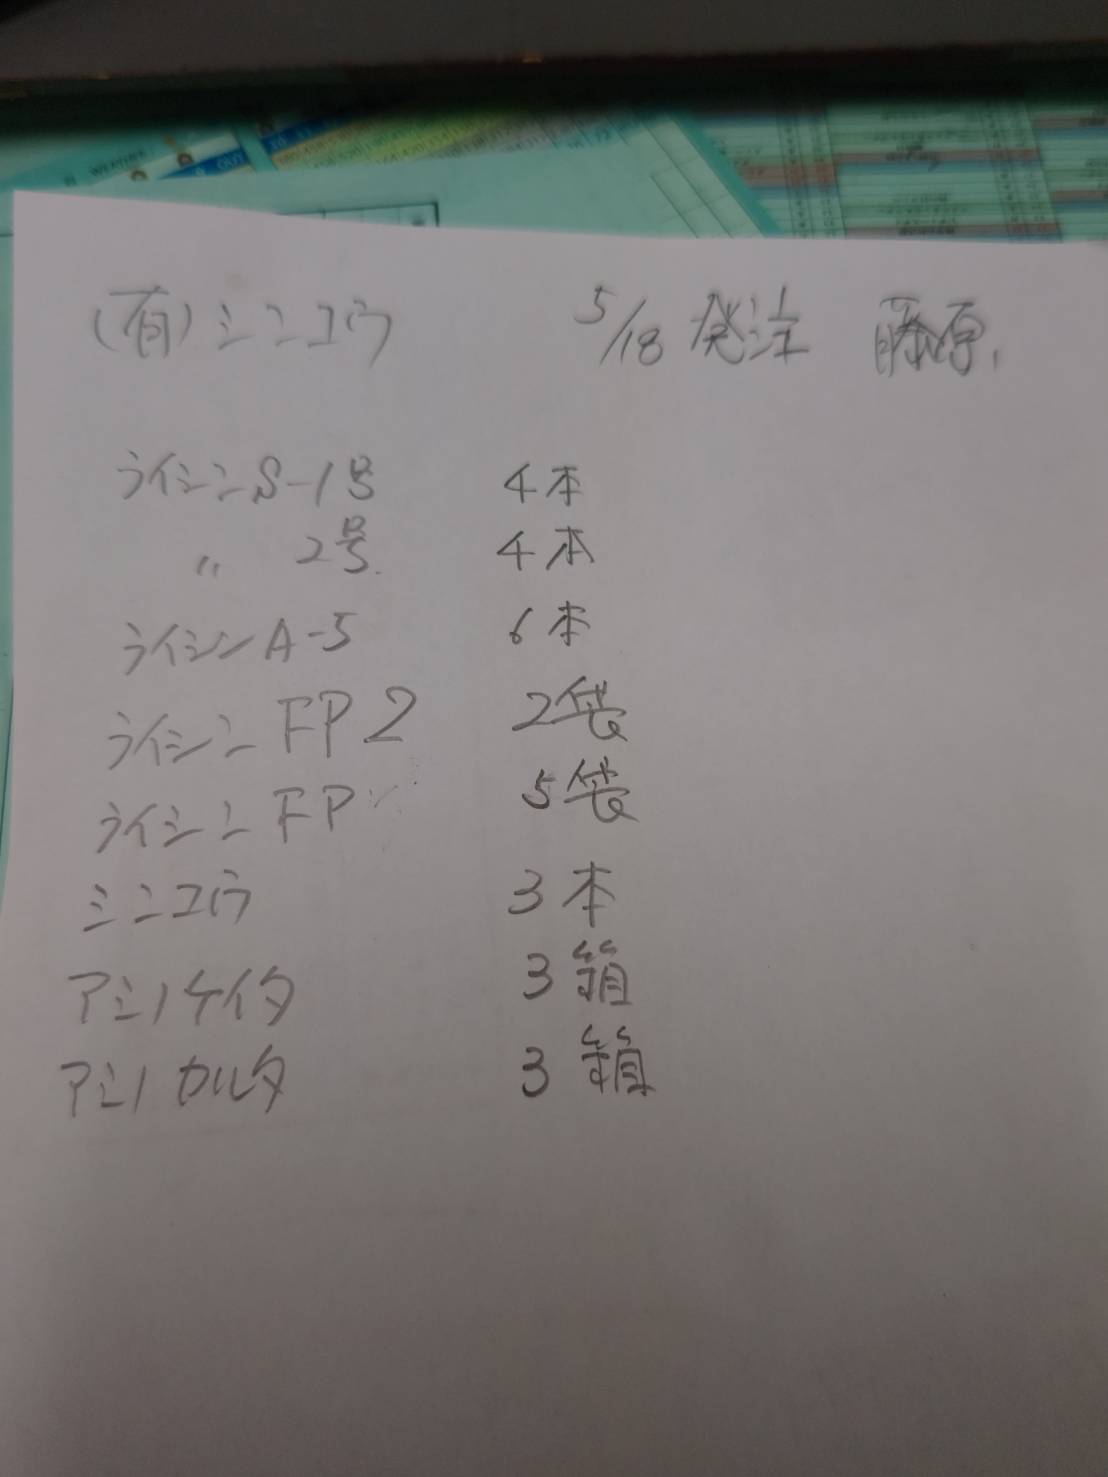 (有)シンコウ 5/18 発注 藤原
ライシンS-1号 4本
〃 2号 4本
ライシンA-5 6本
ライシンFP2 2袋
ライシンFP 5袋
シンコウ 3本
アミノケイタ 3箱
アミノカルタ 3箱